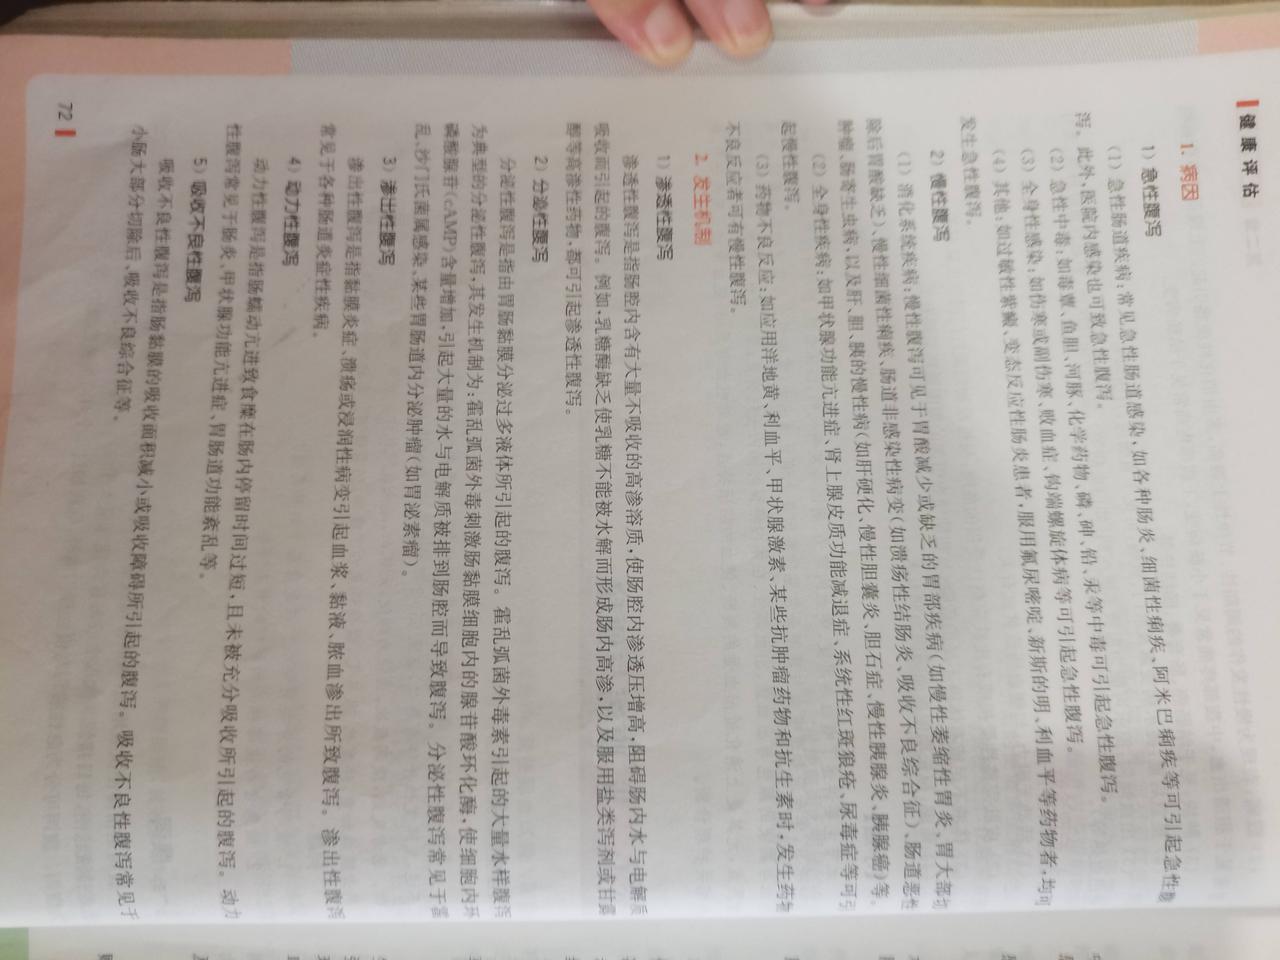 健康评估
1. 病因
1）急性腹泻
（1）急性肠道疾病：常见急性肠道感染，如各种肠炎、细菌性痢疾、阿米巴痢疾等可引起急性腹
泻。此外，医院内感染也可致急性腹泻。
（2）急性中毒：如毒蕈、鱼胆、河豚、化学药物、磷、砷、铅、汞等中毒可引起急性腹泻。
（3）全身性感染：如伤寒或副伤寒、败血症、钩端螺旋体病等可引起急性腹泻。
（4）其他：如过敏性紫癜、变态反应性肠炎患者，服用氟尿嘧啶、新斯的明、利血平等药物者，均可
发生急性腹泻。
2）慢性腹泻
（1）消化系统疾病：慢性腹泻可见于胃酸减少或缺乏的胃部疾病（如慢性萎缩性胃炎，胃大部切
除后胃酸缺乏）、慢性细菌性痢疾、肠道非感染性病变（如溃疡性结肠炎，吸收不良综合征）、肠道恶性
肿瘤、肠寄生虫病，以及肝、胆、胰的慢性病（如肝硬化、慢性胆囊炎、胆石症、慢性胰腺炎、胰腺癌）等。
（2）全身性疾病：如甲状腺功能亢进症、肾上腺皮质功能减退症、系统性红斑狼疮、尿毒症等可引
起慢性腹泻。
（3）药物不良反应：如应用洋地黄、利血平、甲状腺激素、某些抗肿瘤药物和抗生素时，发生药物
不良反应者可有慢性腹泻。
2. 发生机制
1）渗透性腹泻
渗透性腹泻是指肠腔内含有大量不吸收的高渗溶质，使肠腔内渗透压增高，阻碍肠内水与电解质
吸收而引起的腹泻。例如，乳糖酶缺乏使乳糖不能被水解而形成肠内高渗，以及服用盐类泻剂或甘露
醇等高渗性药物，都可引起渗透性腹泻。
2）分泌性腹泻
分泌性腹泻是指由胃肠黏膜分泌过多液体所引起的腹泻。霍乱弧菌外毒素引起的大量水样腹泻
为典型的分泌性腹泻，其发生机制为：霍乱弧菌外毒刺激肠黏膜细胞内的腺苷酸环化酶，使细胞内环
磷酸腺苷（cAMP）含量增加，引起大量的水与电解质被排到肠腔而导致腹泻。分泌性腹泻常见于霍
乱、沙门氏菌属感染、某些胃肠道内分泌肿瘤（如胃泌素瘤）。
3）渗出性腹泻
渗出性腹泻是指黏膜炎症、溃疡或浸润性病变引起血浆、黏液、脓血渗出所致腹泻。渗出性腹泻
常见于各种肠道炎症性疾病。
4）动力性腹泻
动力性腹泻是指肠蠕动亢进致食糜在肠内停留时间过短，且未被充分吸收所引起的腹泻。动力
性腹泻常见于肠炎、甲状腺功能亢进症、胃肠道功能紊乱等。
5）吸收不良性腹泻
吸收不良性腹泻是指肠黏膜的吸收面积减小或吸收障碍所引起的腹泻。吸收不良性腹泻常见于
小肠大部分切除后、吸收不良综合征等。
72